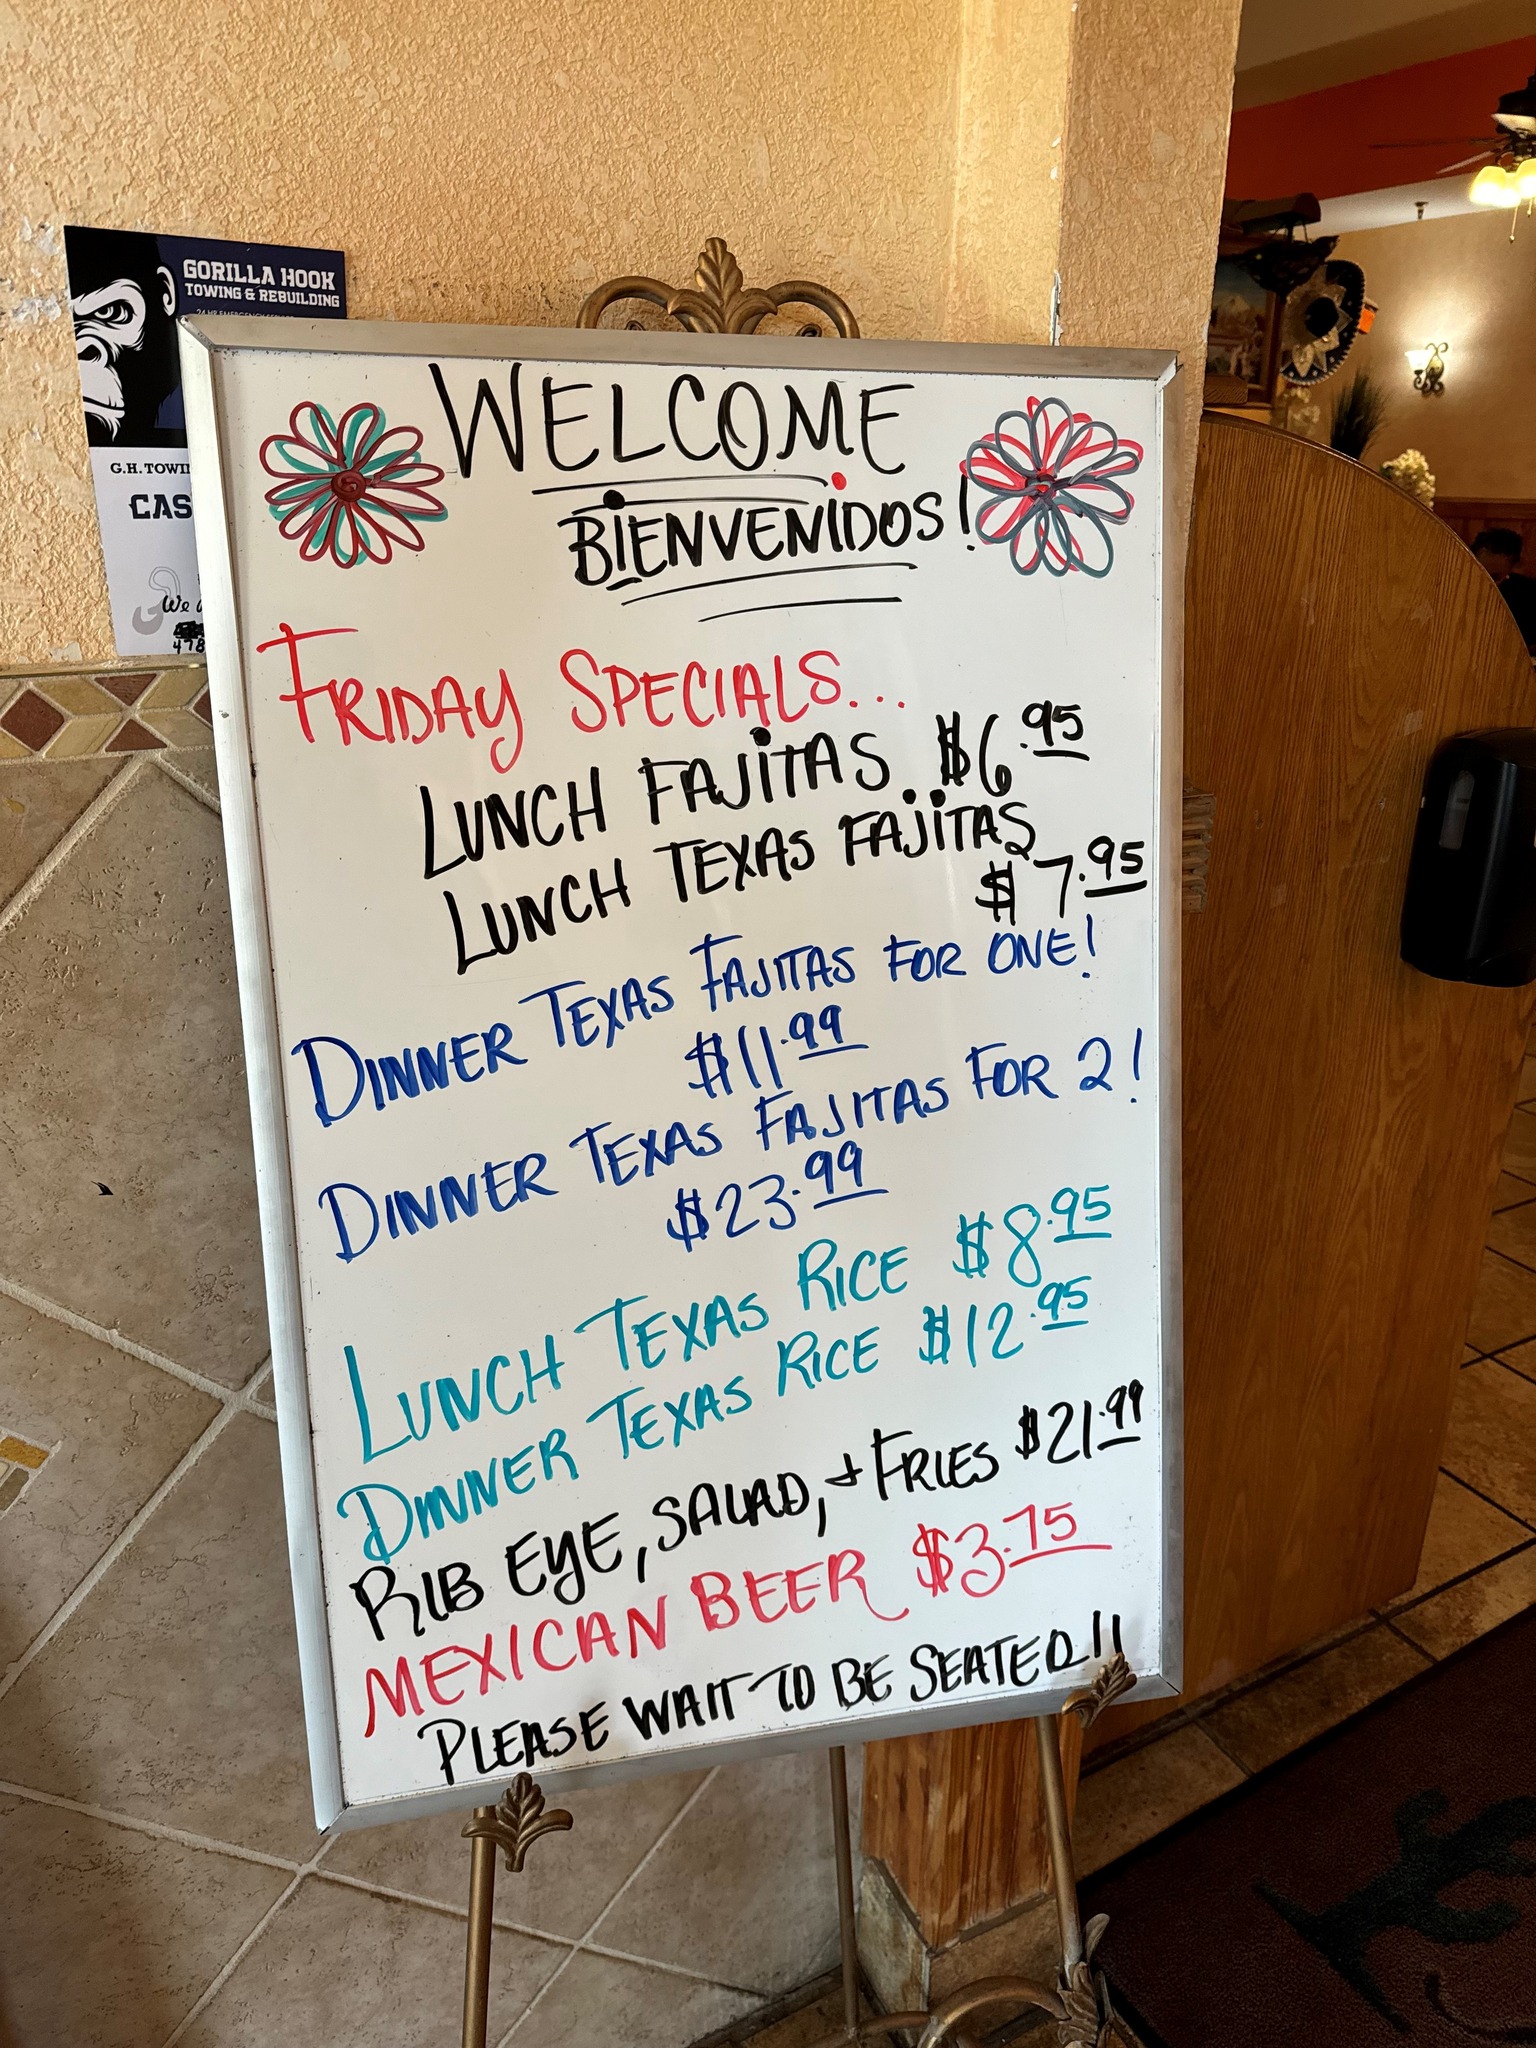 GORILLA HOOK
TOWING & REBUILDING
G.H. TOWI
CAS
We
478
WELCOME
BIENVENIDOS!
FRIDAY SPECIALS...
LUNCH FAJITAS $6.95
LUNCH TEXAS FAJITAS
$7.95
DINNER TEXAS FAJITAS FOR ONE!
$11.99
DINNER TEXAS FAJITAS FOR 2!
$23.99
LUNCH TEXAS RICE $8.95
DINNER TEXAS RICE $12.95
RIB EYE, SALAD, + FRIES $21.99
MEXICAN BEER $3.75
PLEASE WAIT TO BE SEATED!!